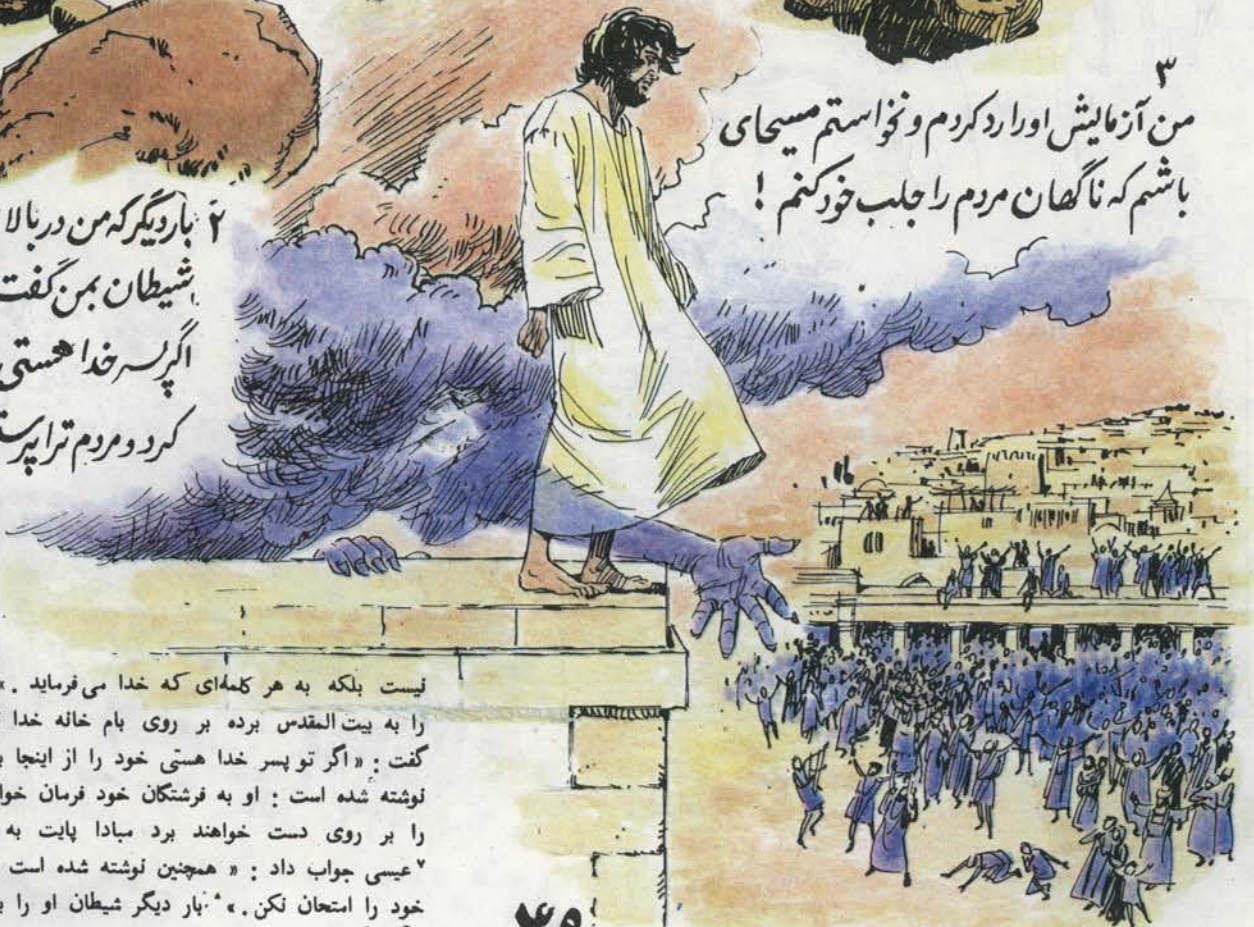 ۳
من آزمایش او را رد کردم و نخواستم مسیحای
باشم که ناگهان مردم را جلب خود کنم !
۲ بار دیگر که من در بالا
شیطان بمن گفت
اگر پسر خدا هستی
کرد و مردم ترا
نیست بلکه به هر کلمه‌ای که خدا می فرماید . »
را به بیت المقدس برده بر روی بام خانه خدا
گفت : « اگر تو پسر خدا هستی خود را از اینجا
نوشته شده است : او به فرشتگان خود فرمان
را بر روی دست خواهند برد مبادا پایت به
۷ عیسی جواب داد : « همچنین نوشته شده است
خود را امتحان نکن . » ۸ بار دیگر شیطان او را